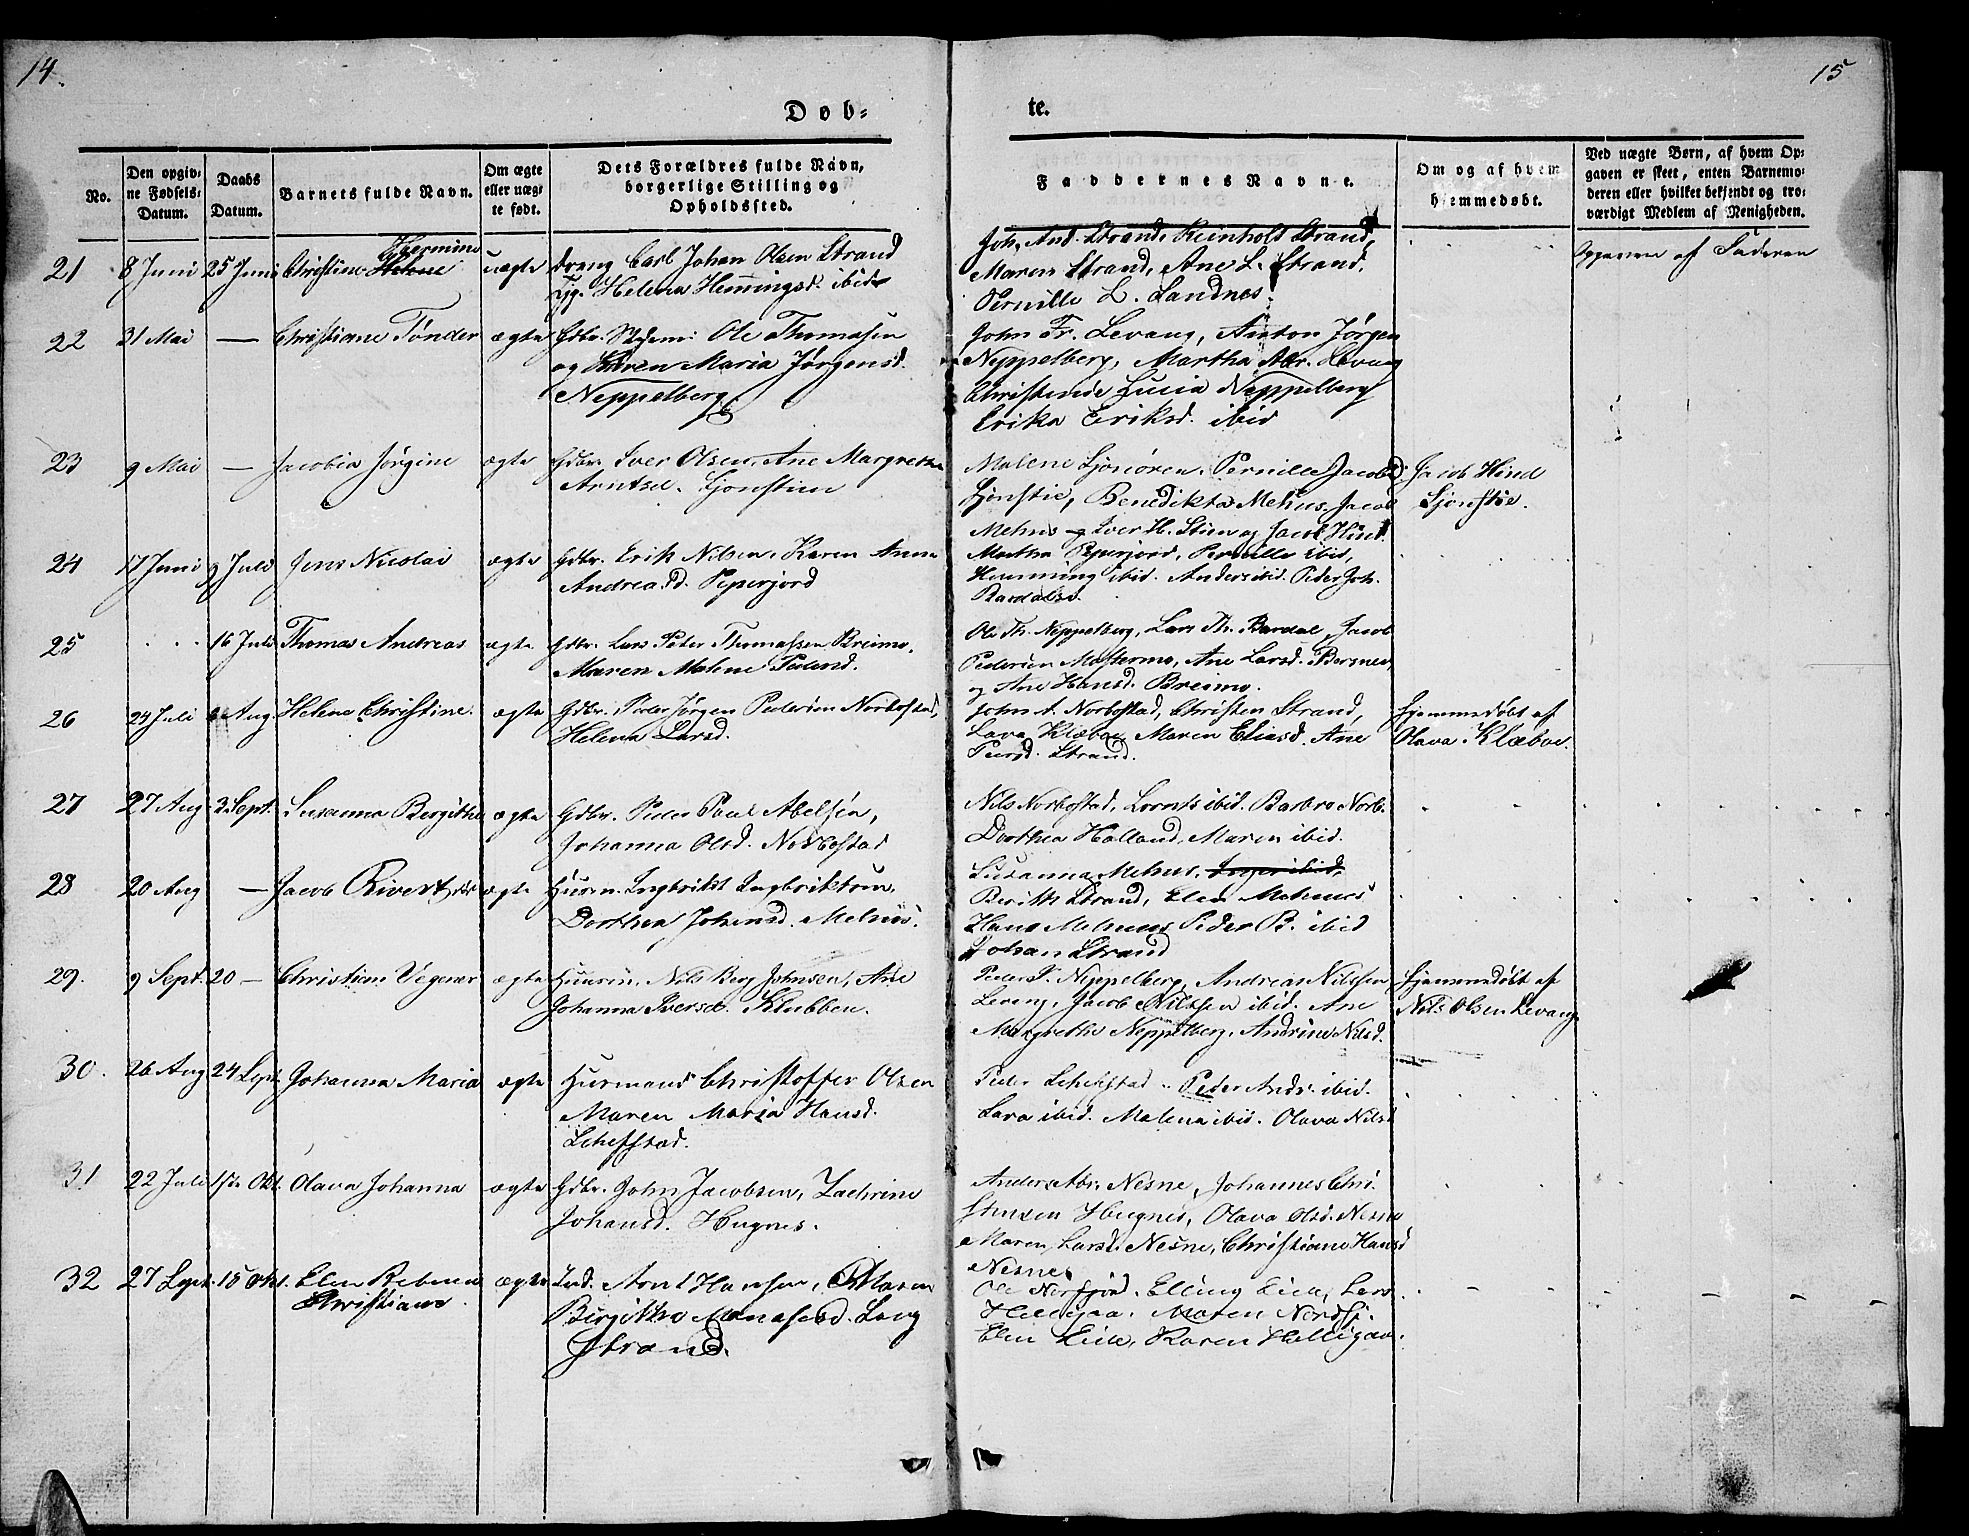 14.
15
Døb-
te.
No.
Den opgiv-
ne Fødsels-
Datum.
Daabs
Datum.
Barnets fulde Navn.
Om ægte
eller uæg-
te født.
Dets Forældres fulde Navn,
borgerlige Stilling og
Opholdssted.
Faddernes Navne.
Om og af hvem
hjemmedøbt.
Ved uægte Børn, af hvem Op-
gaven er skeet, enten Barnemo-
deren eller hvilket bekjendt og tro-
værdigt Medlem af Menigheden.
21 8 Juni 25 Juni Christine Helene Hermine uægte
Dreng Carl Johan Olsen Strand
Pg. Helena Hemingsd. ibid
Joh. And. Strand, Reinholt Strand,
Maren Strand, Ane L. Strand.
Pernille L. Sandnes.
Opgaven af Faderen
22 31 Mai — Christiane Tønder ægte
Gdbr. Ole Thomasen
og Karen Maria Jørgensd.
Neppelberg
John Fr. Levang, Anton Jørgen
Neppelberg, Martha Abr. Levang
Lucia Neppelberg
Erika Eriksd. ibid
23 9 Mai — Jacobia Jørgine ægte
Gdbr. Iver Olsen, Ane Margrethe
Arntsd. Sjonstien
Malene Sjonøren, Pernille Jacobsd.
Sjonstie, Benedikta Mehus, Jacob
Mehus og Iver H. Stien og Jacob Hind.
Jacob Hind
Sjonstie.
24 17 Juni 9 Juli Jens Nicolai ægte
Gdbr. Erik Nilsen, Karen Anna
Andreasd. Peperjord
Martha Peperjord, Pernille ibid,
Hemming ibid. Anders ibid. Peder Joh.
Bardalse.
25 16 Juli Thomas Andreas ægte
Gdbr. Lars Peter Thomassen Breimo,
Maren Malene Pedersd.
Ole Th. Neppelberg, Lars Th. Bardal, Jacob
Pedersen Mostermo, Ane Larsd.
og Ane Hansd. Breimo.
26 24 Juli 6 Aug. Helene Christine. ægte
Gdbr. Peder Jørgen Pedersen Norbostad,
Helena Larsd.
John A. Norbostad, Christen Strand,
Lava Klæboe, Maren Eliasd. Ane
Pedersd. Strand.
Hjemmedøbt af
Olava Klæboe.
27 27 Aug 3 Sept. Susanna Bergithe ægte
Gdbr. Peder Paul Abelsen,
Johanna Olsd. Norbostad
Nils Norbostad, Lorents ibid. Barbro Norb.
Dorthea Holland, Maren ibid.
28 20 Aug — Jacob ægte
Husm. Ingbrikt Ingbriktsen,
Dorthea Johansd. Mehus.
Susanna Mehus, Inger ibid,
Berith Strand, Elen Mehus
Hans Mehus Peder B. ibid
Johan Strand
29. 9 Sept. 20 — Christian Vegener ægte
Huusm. Nils Berg Johnsen, Ane
Johanna Iversd. Klubben.
Peder T. Neppelberg, Andreas Nilssen
Levang, Jacob Nilssen ibid. Ane
Margrethe Neppelberg, Andrine Nilsd.
Hjemmedøbt af
Nils Olsen Levang.
30. 26 Aug 24 Sept. Johanna Maria ægte
Husmand Christoffer Olsen
Maren Maria Hansd.
Schefstad.
Peder Schefstad. Peder Ands. ibid.
Lara ibid. Malena ibid. Olava Nilsd
31 22 Juli 1ste Okt. Olava Johanna ægte
Gdbr. John Jacobsen, Zachrine
Johansd. Hugnes.
Anders Abr. Nesne, Johannes Chri-
stensen Hugnes, Olava Olsd. Nesne
Maren Larsd. Nesne, Christiane Hansd
Nesne.
32 27 Sept. 15 Okt. Elen Rebecca
Christiane ægte
Ind. Arnt Hansen, Maren
Birgitha Monasesd. Lang
strand.
Ole Nerfjord. Elling Lien, Lars
Helligaa. Maren Nordfj.
Elen Lien, Karen Helligaa.